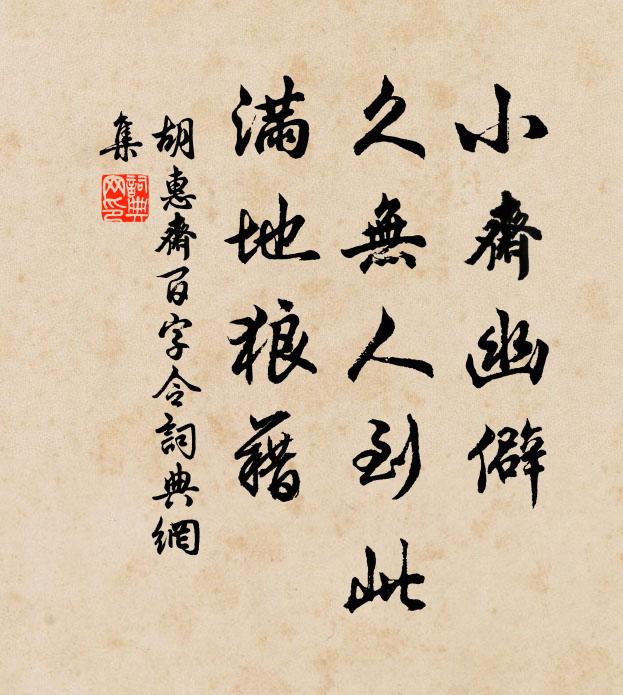 小齋幽僻
久無人到此
滿地狼藉
胡惠齋百字令詞典網
集
詞典
网印